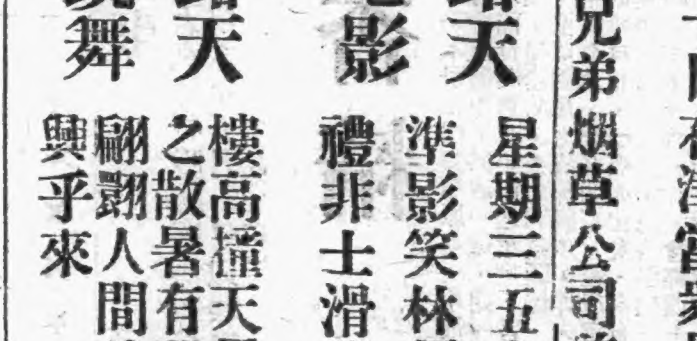 兄弟烟草公司
天
影
星期三五
準影笑林
禮非士滑
天
舞
樓高撞天
之散暑有
翩翾人間
興乎來